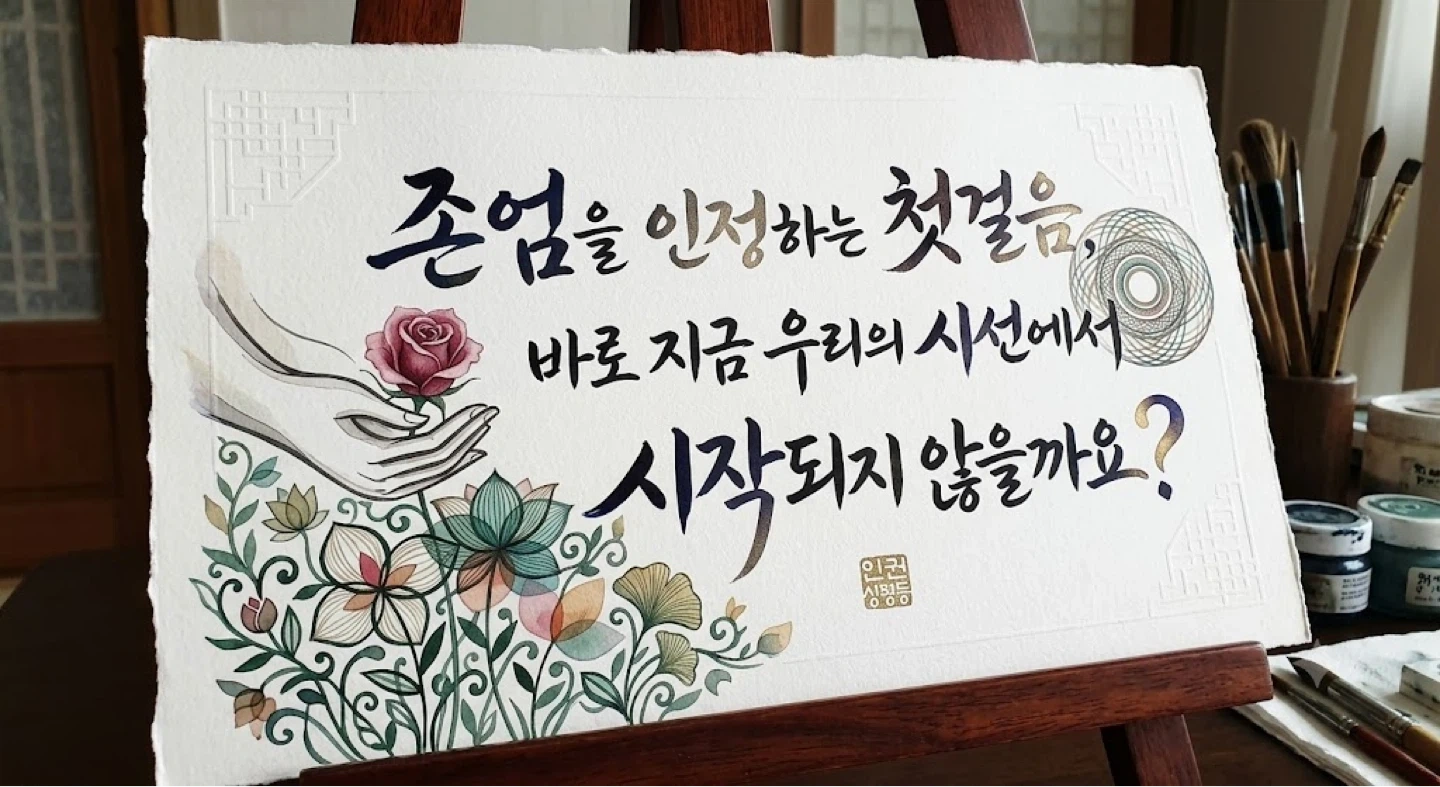 존엄을 인정하는 첫걸음,
바로 지금 우리의 시선에서
시작되지 않을까요?
인권
성평등